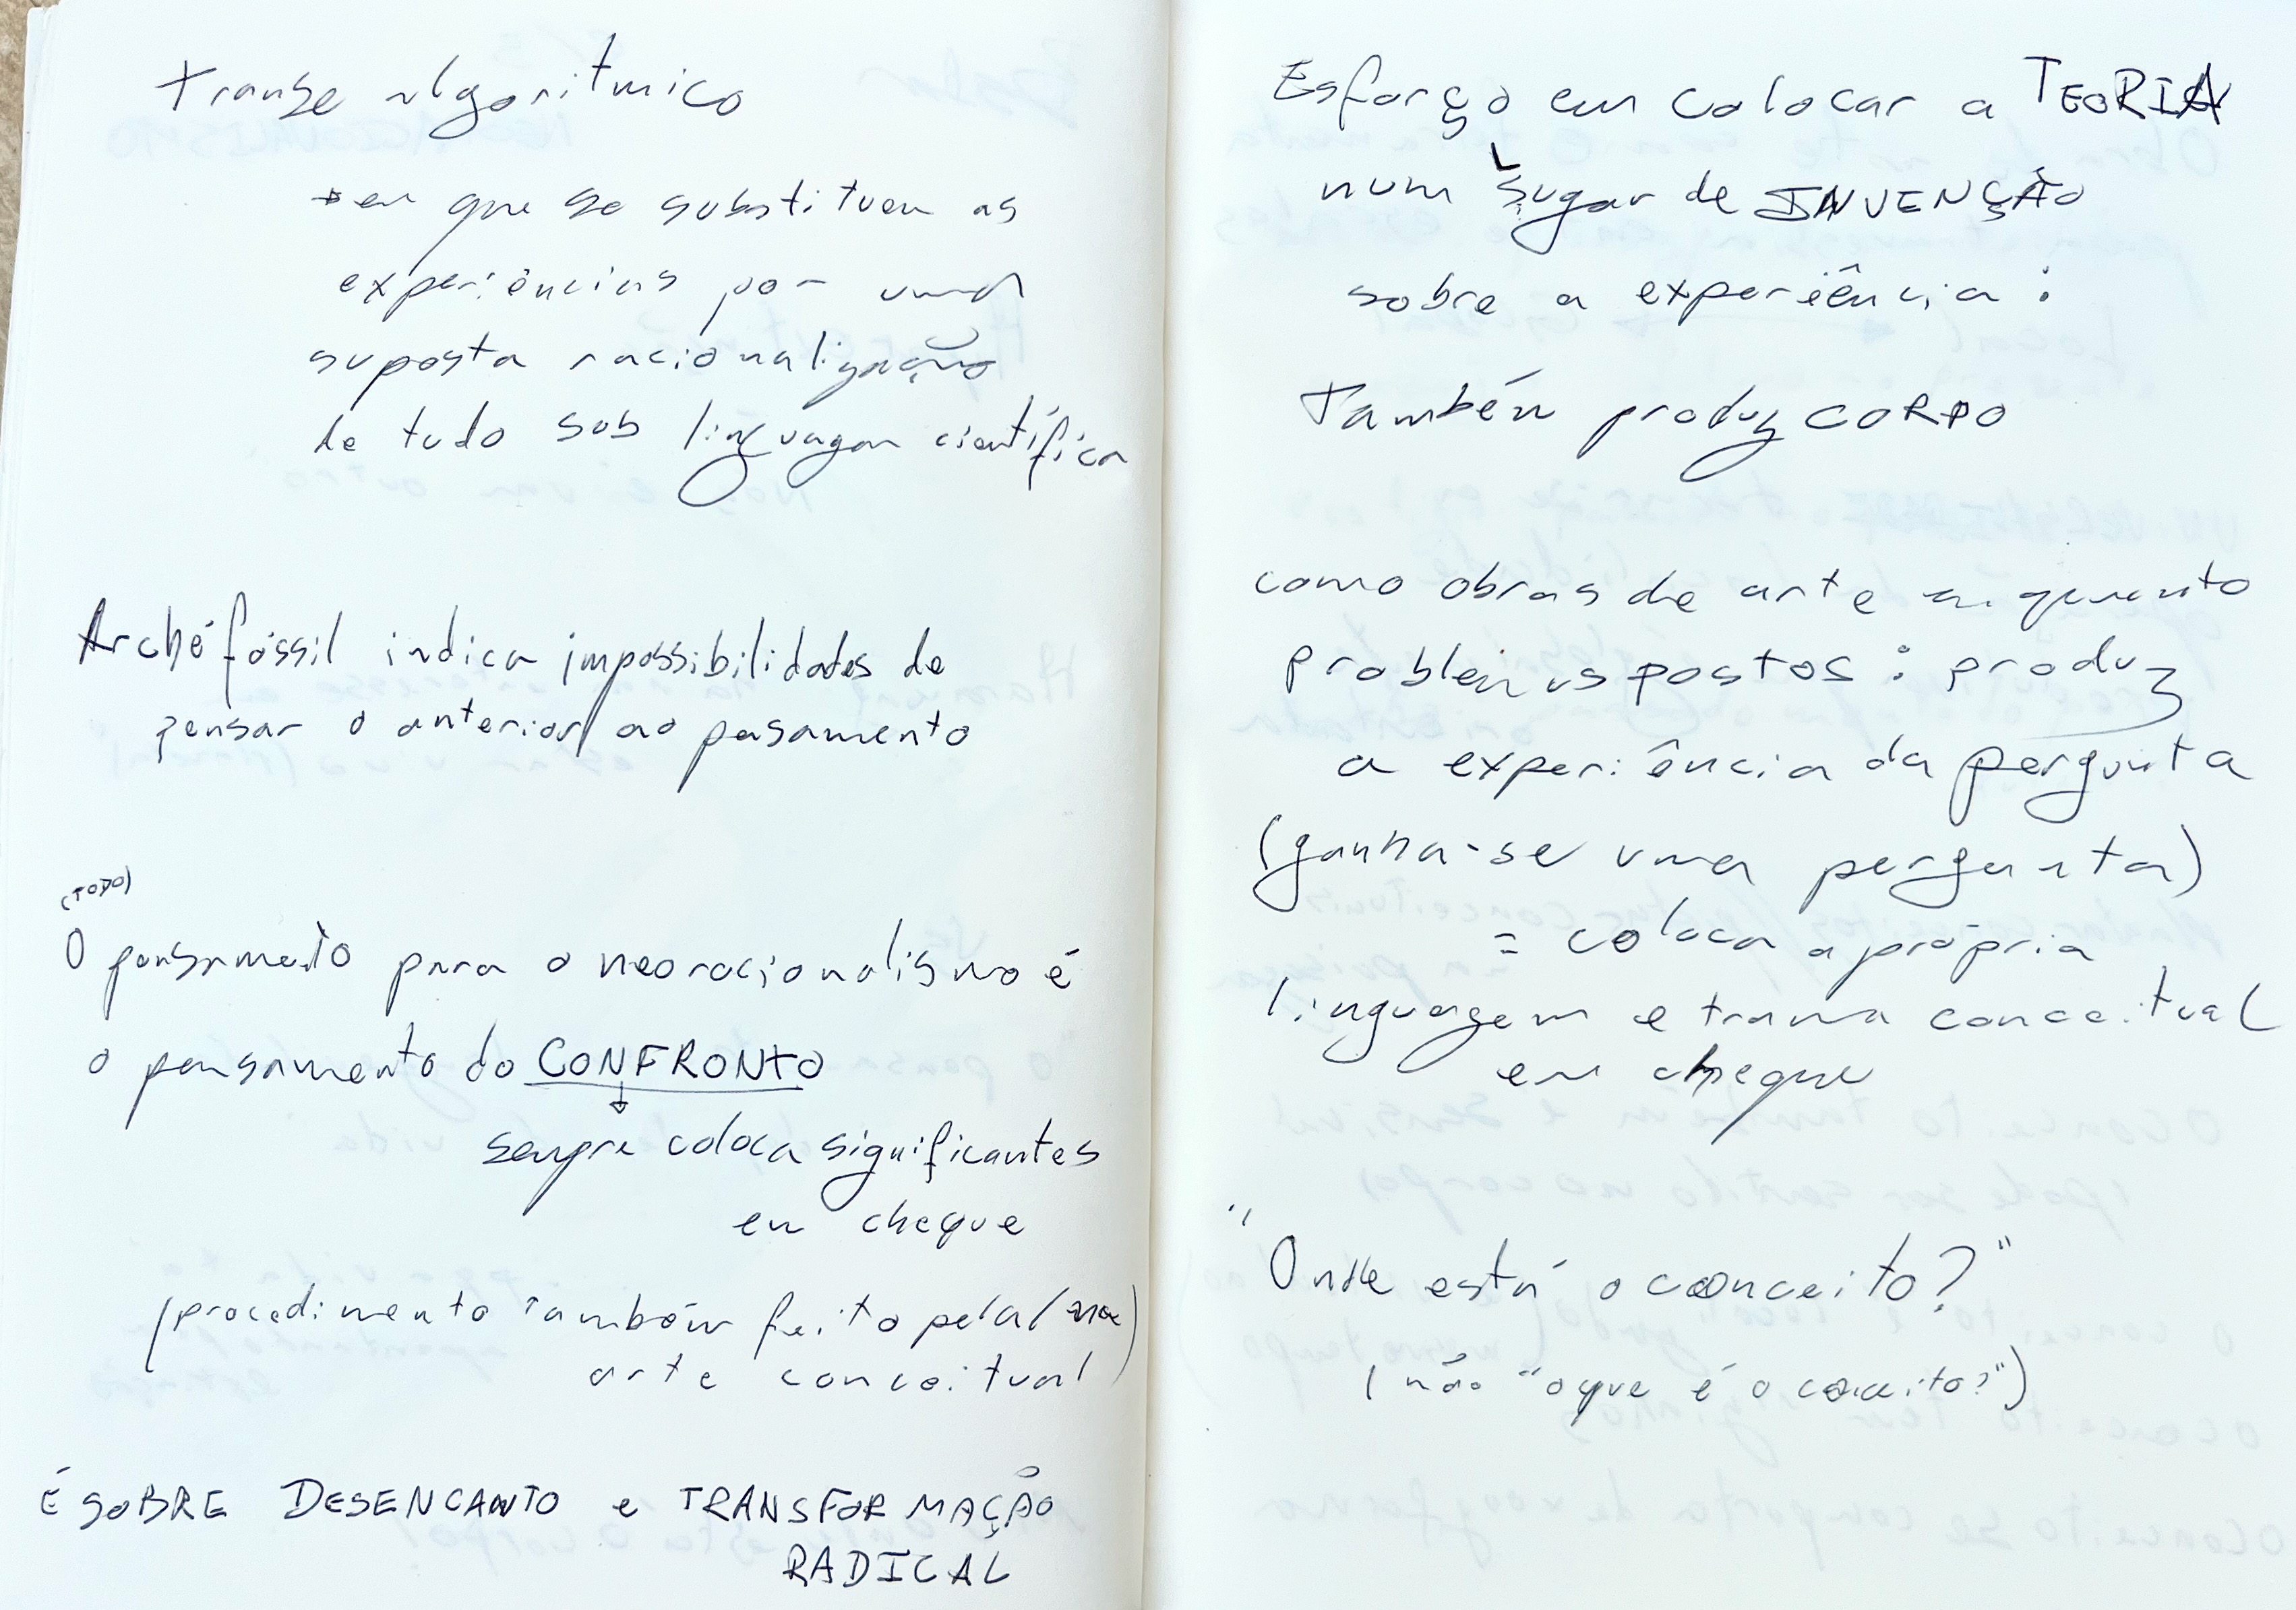 Transe algorítmico
em que se substituem as
experiências por uma
suposta racionalização
de tudo sob linguagem científica
Archéfóssil indica impossibilidades de
pensar o anterior ao pensamento
(TODO)
O pensamento para o neoracionalismo é
o pensamento do CONFRONTO
↓
sempre coloca significantes
em cheque
(procedimento também feito pela/na)
arte conceitual
É SOBRE DESENCANTO e TRANSFORMAÇÃO
RADICAL
Esforço em colocar a TEORIA
num Lugar de INVENÇÃO
sobre a experiência :
Também produz CORPO
como obras de arte enquanto
problemas postos : produz
a experiência da pergunta
(ganha-se uma pergunta)
= coloca a própria
linguagem e trama conceitual
em cheque
"Onde está o conceito?"
(não "o que é o conceito?")